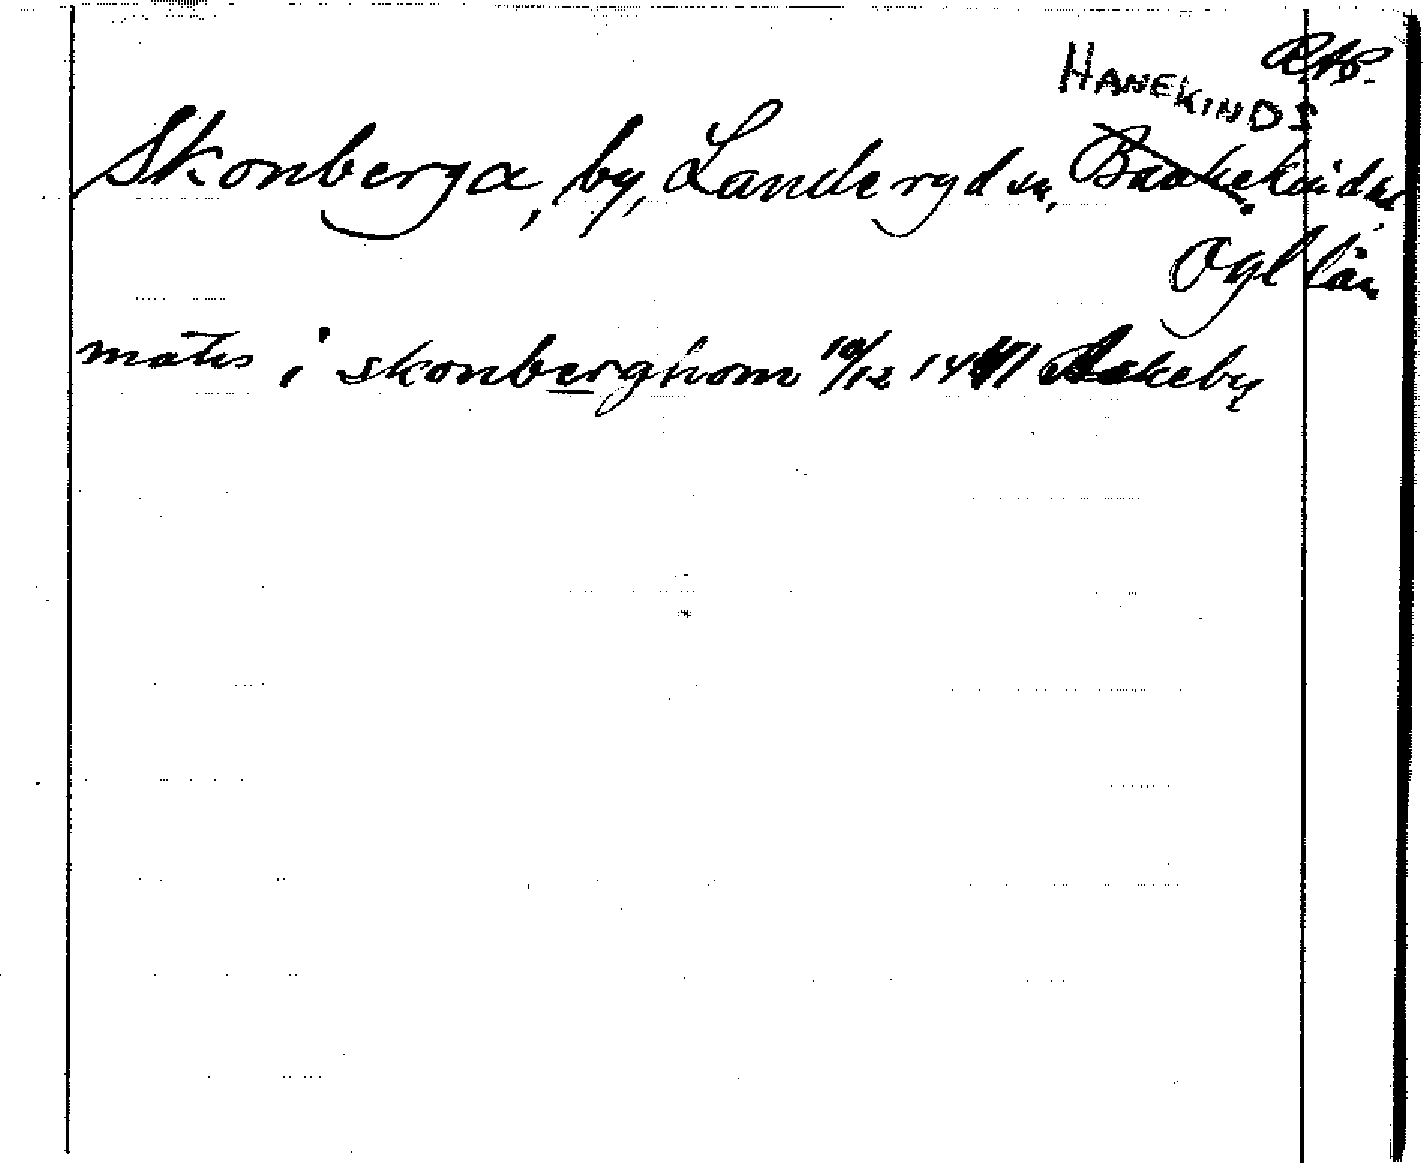 HANEKINDS RAP.
Skonberga, by, Landeryd sn, Bankekinds hd
Ögl län
matis i skonberghom 10/12 1441 Askeby